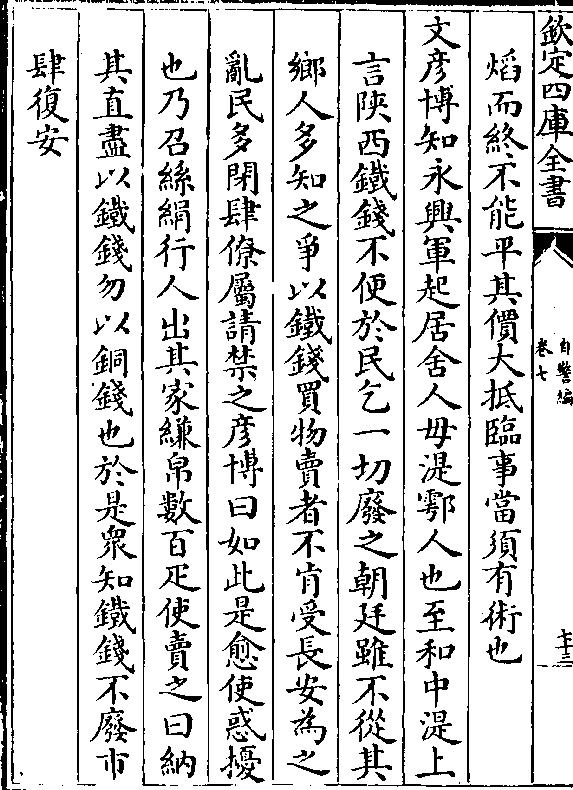 欽定四庫全書
自警編
卷七
七十三
焰而終不能平其價大抵臨事當須有術也
文彦博知永興軍起居舍人毋湜鄠人也至和中湜上
言陜西鐵錢不便於民乞一切廢之朝廷雖不從其
鄉人多知之爭以鐵錢買物賣者不肯受長安為之
亂民多閉肆僚屬請禁之彦博曰如此是愈使惑擾
也乃召絲絹行人出其家縑帛數百疋使賣之曰納
其直盡以鐵錢勿以銅錢也於是衆知鐵錢不廢市
肆復安